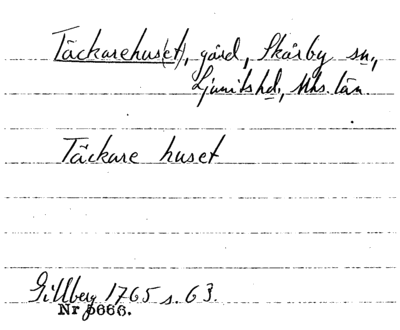 Täckarehus(et), gård, Skårby sn.,
Ljunits hd., Mhs. län.
Täckare huset
Gillberg 1765 s. 63.
Nr 5666.